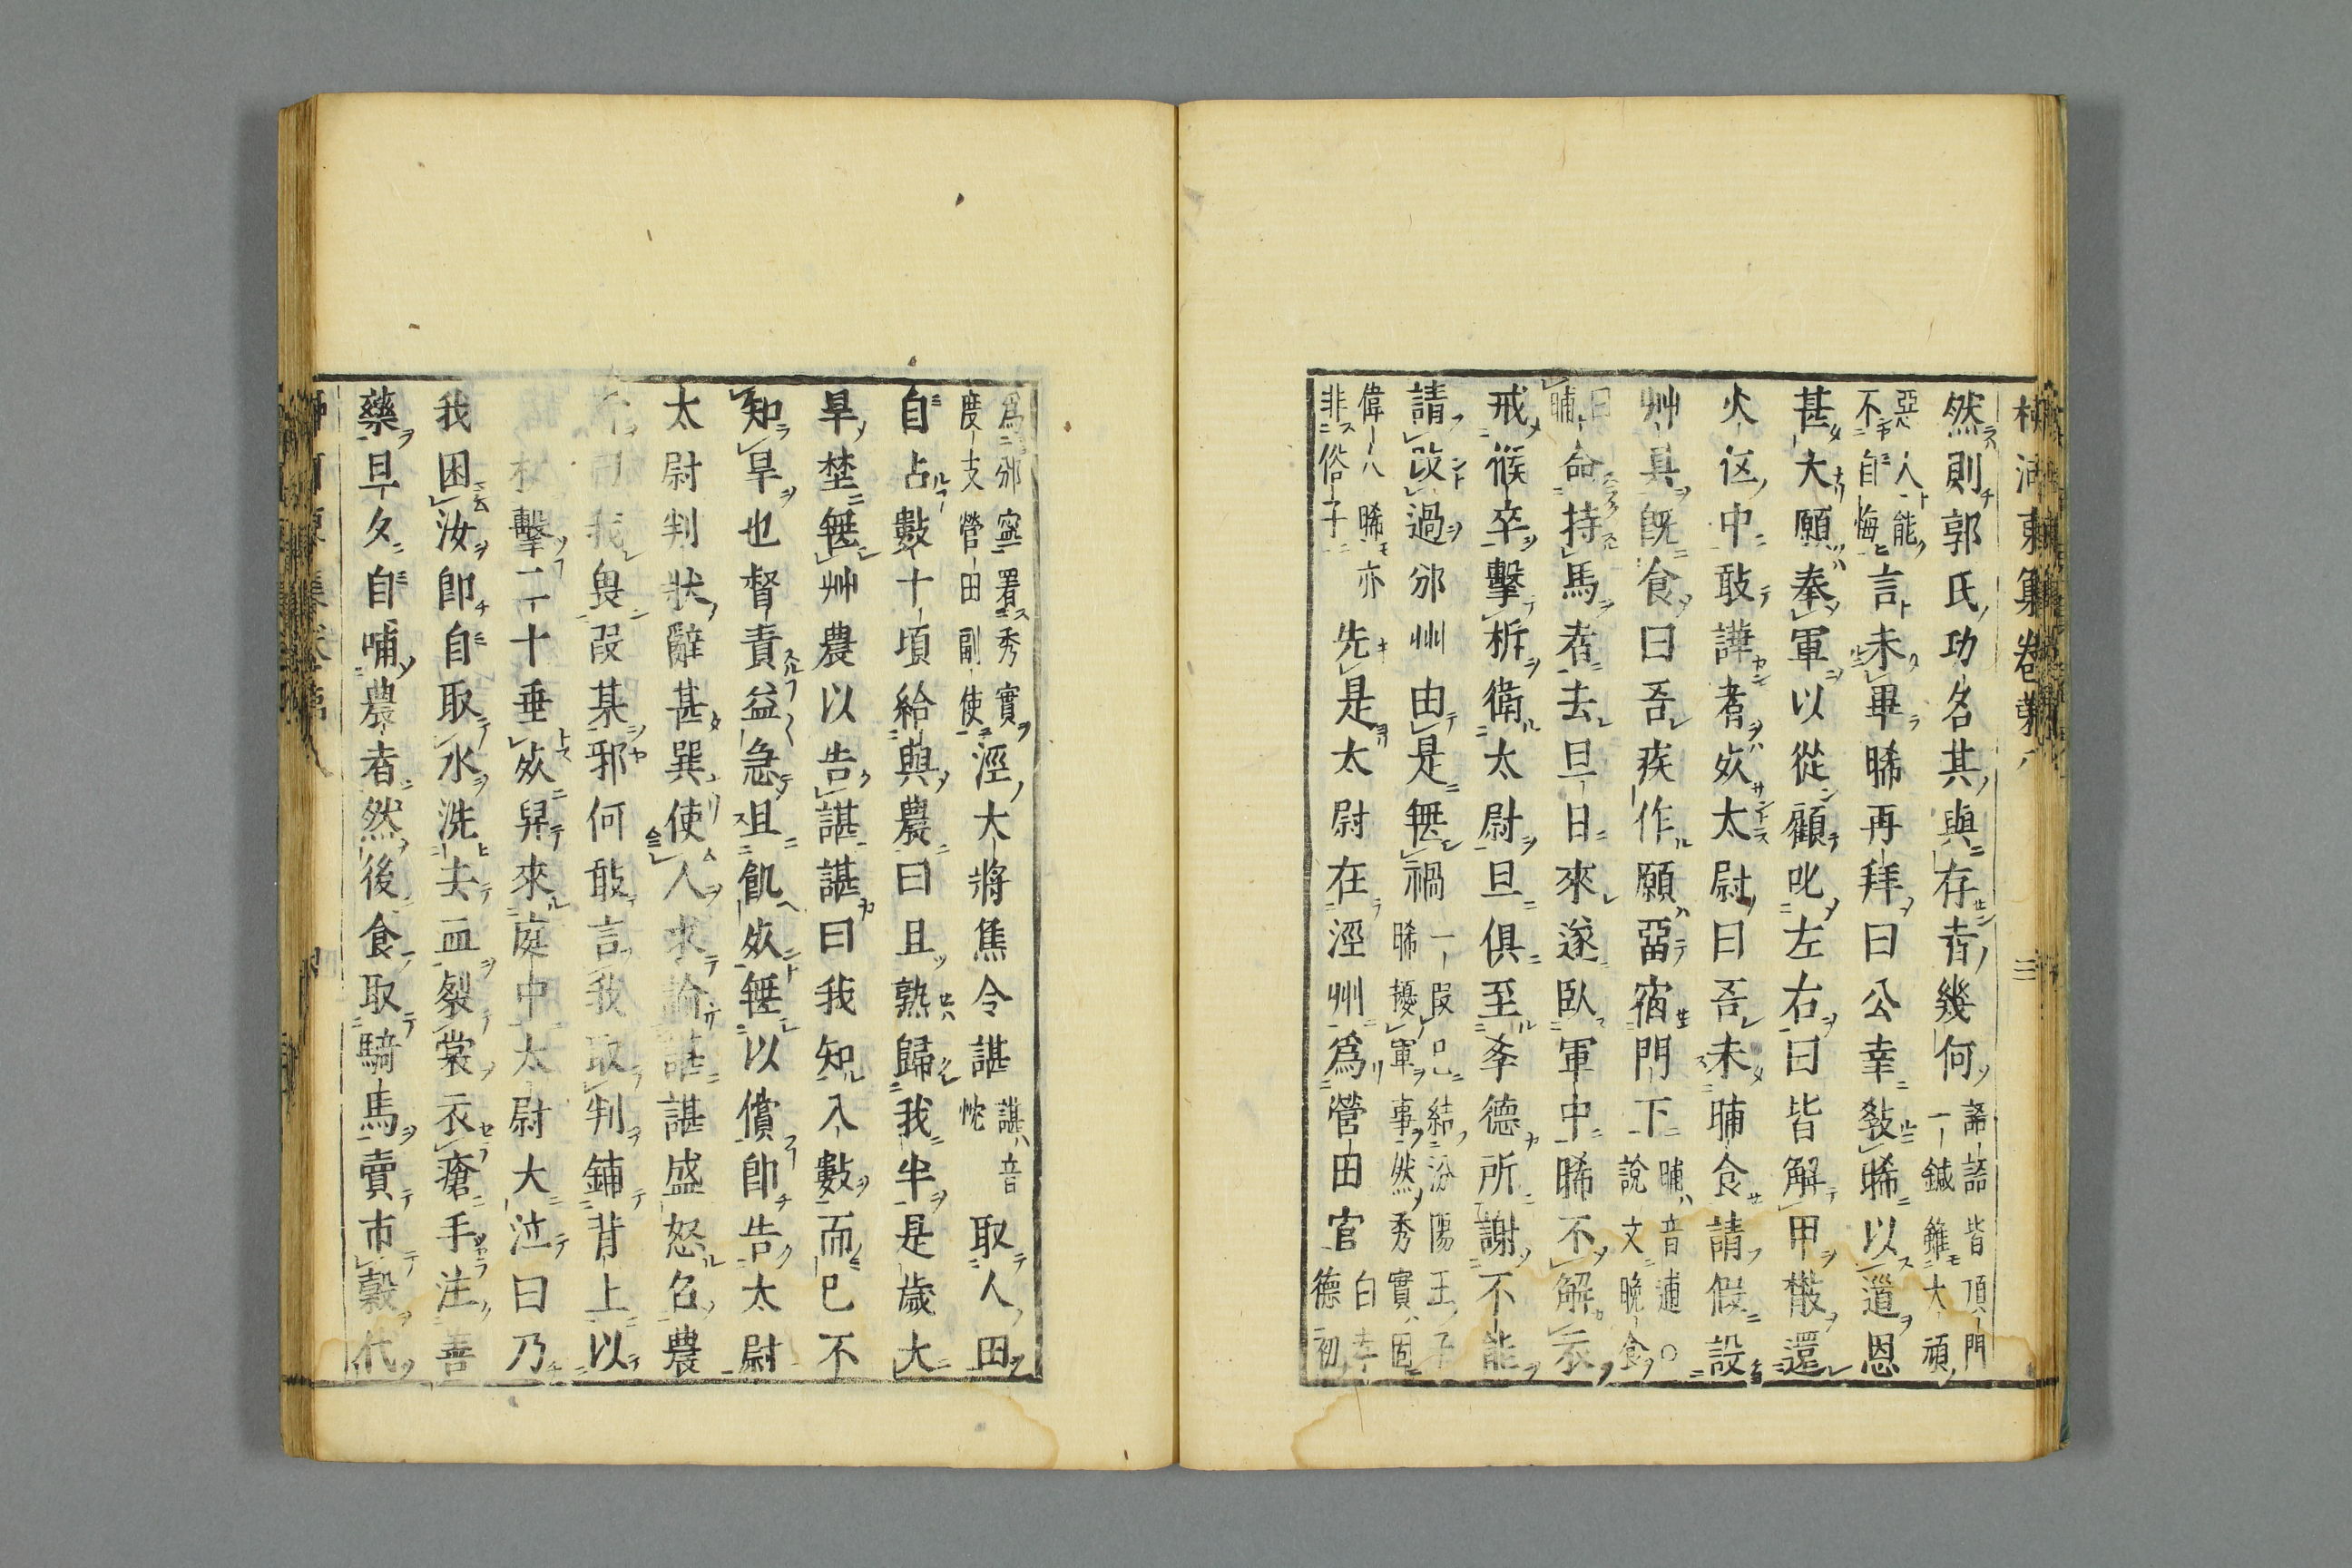 柳河東集卷第八 三
然則郭氏功名其與存者幾何 諸語皆頂門一鍼雖大頑
惡人能不自悔 言未畢晞再拜曰公幸敎晞以道恩
甚大願奉軍以從顧叱左右曰皆解甲散還
火伍中敢譁者死太尉曰吾未晡食請假設
艸具旣食曰吾疾作願留宿門下 晡音逋○說文晩食
日晡 命持馬者去旦日來遂臥軍中晞不解衣
戒候卒擊柝衛太尉旦俱至孝德所謝不能
請改過邠州由是無禍 一段已結汾陽王子晞擾軍事然秀實固
偉人晞亦非俗子 先是太尉在涇州爲營田官 白孝德初
爲邠寧署秀實度支營田副使 涇大將焦令諶 諶音忱 取人田
自占數十頃給與農曰且熟歸我半是歲大
旱埜無艸農以告諶諶曰我知入數而已不
知旱也督責益急且飢死無以償卽告太尉
太尉判狀辭甚巽使人求諭諶諶盛怒召農
者曰我畏段某邪何敢言我取判鋪背上以
杖擊二十垂死舁來庭中太尉大泣曰乃
我困汝卽自取水洗去血裂裳衣瘡手注善
藥旦夕自哺農者然後食取騎馬賣市穀代